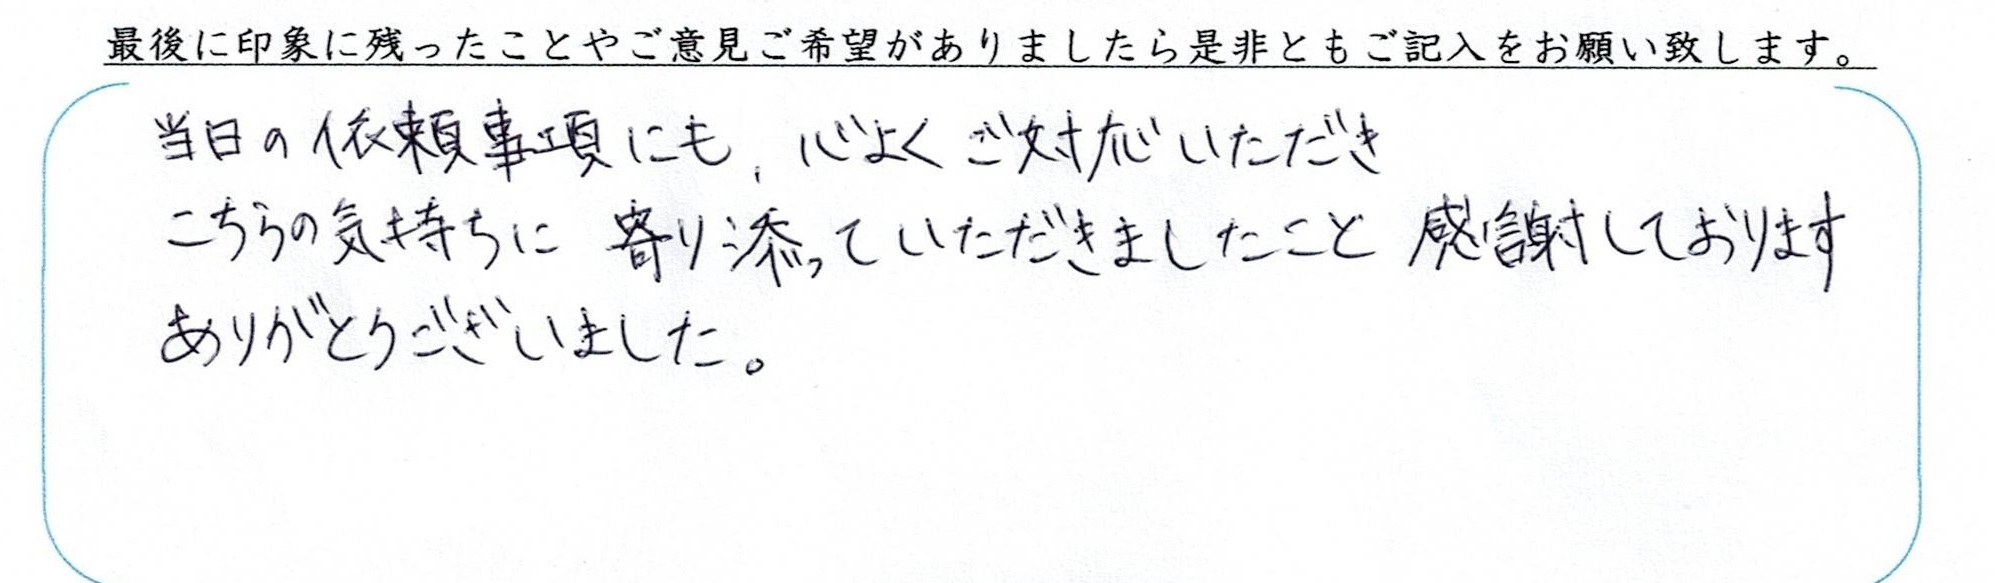 最後に印象に残ったことやご意見ご希望がありましたら是非ともご記入をお願い致します。
当日の依頼事項にも、心よくご対応いただき
こちらの気持ちに 寄り添っていただきましたこと 感謝しております
ありがとうございました。